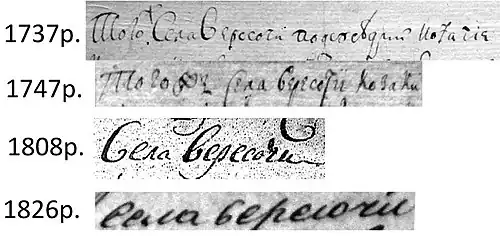 1737р. Того ж Села Вересочи подсосѣдки
1747р. Того жъ села Вересочи козаки
1808р. Села Вересочи
1826р. села Вересочи